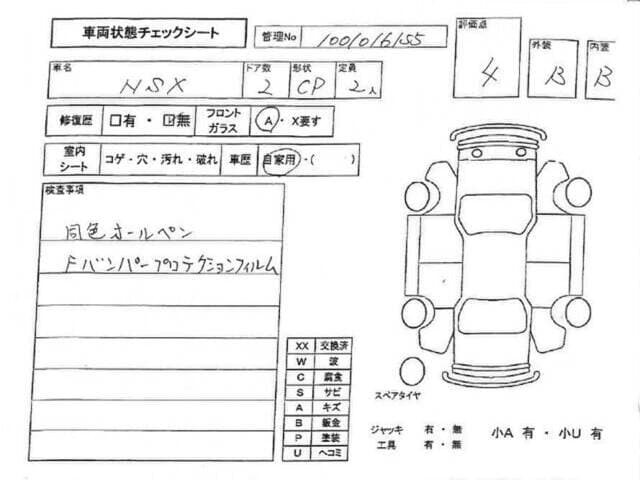 車両状態チェックシート
管理No 1001016155
評価点 4
外装 B
内装 B
車名 NSX
ドア数 2
形状 CP
定員 2人
修復歴 □有・☑無
フロントガラス A・X要す
室内シート コゲ・穴・汚れ・破れ
車歴 自家用・( )
検査事項
同色オールペン
Fバンパープロテクションフィルム
XX 交換済
W 波
C 腐食
S サビ
A キズ
B 鈑金
P 塗装
U ヘコミ
スペアタイヤ
ジャッキ 有・無
工具 有・無
小A 有・小U 有